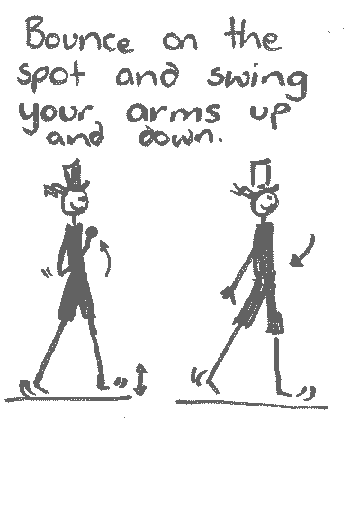 Bounce on the
spot and swing
your arms up
and down.